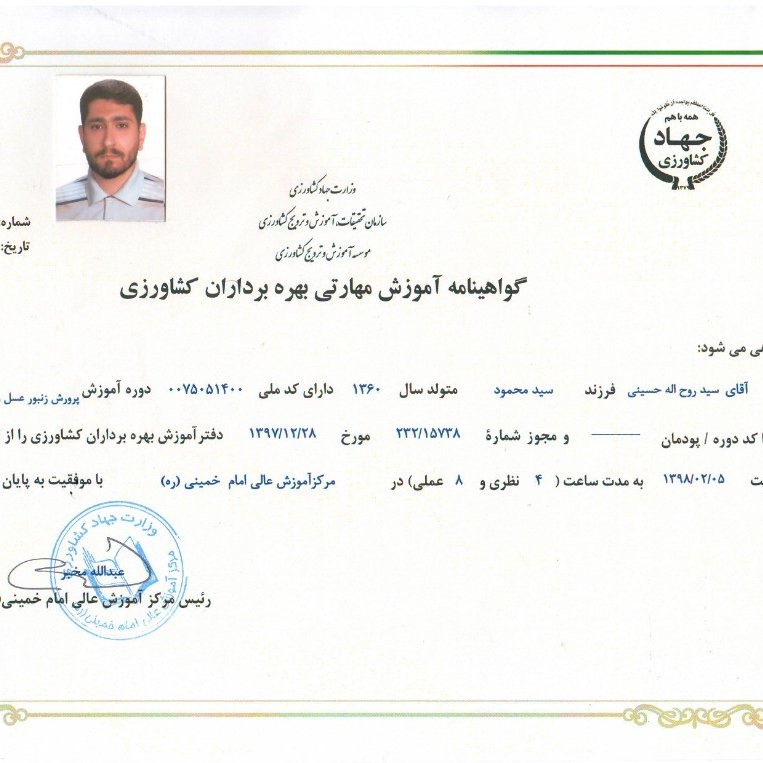 همه با هم
جهاد
کشاورزی
۱۳۷۹
وزارت جهاد کشاورزی
سازمان تحقیقات، آموزش و ترویج کشاورزی
موسسه آموزش و ترویج کشاورزی
شماره:
تاریخ:
گواهینامه آموزش مهارتی بهره برداران کشاورزی
هی می شود:
آقای سید روح اله حسینی فرزند سید محمود متولد سال ۱۳۶۰ دارای کد ملی ۰۰۷۵۰۵۱۴۰۰ دوره آموزش پرورش زنبور عسل
ا کد دوره / پودمان ــــــــــ و مجوز شمارۀ ۲۳۲/۱۵۷۳۸ مورخ ۱۳۹۷/۱۲/۲۸ دفتر آموزش بهره برداران کشاورزی را از
ت ۱۳۹۸/۰۲/۰۵ به مدت ساعت ( ۴ نظری و ۸ عملی) در مرکز آموزش عالی امام خمینی (ره) با موفقیت به پایان
وزارت جهاد کشاورزی
مرکز آموزش عالی امام خمینی (ره)
عبدالله مخبر
رئیس مرکز آموزش عالی امام خمینی(